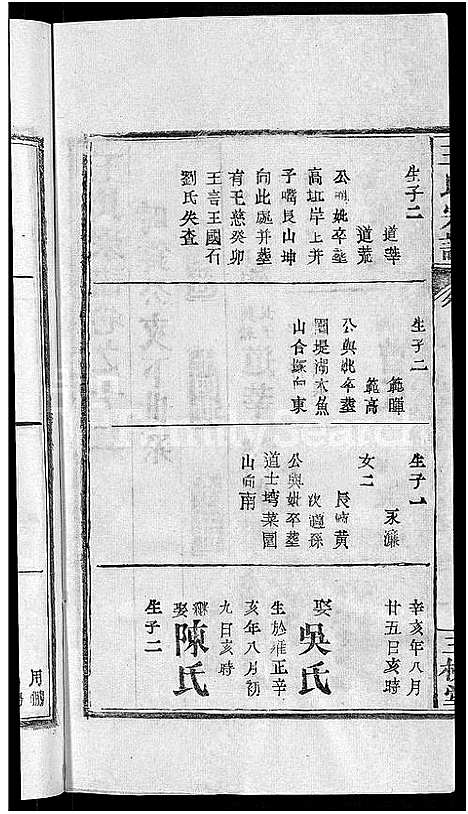 王氏宗譜
三槐堂
生子二
道華
道荒
公與妣卒葬
高坵岸上并
子嘴艮山坤
向此處并葬
有毛慈癸卯
王言王國石
劉氏失查
生子二
範暉
範高
公與妣卒葬
團堤湖木魚
山合塚向東
生子一
永濂
女二
長適黃
次適孫
公與妣卒葬
道士塆菜園
山向南
辛亥年八月
廿五日亥時
娶吳氏
生於雍正辛
亥年八月初
九日亥時
繼娶陳氏
生子二
用